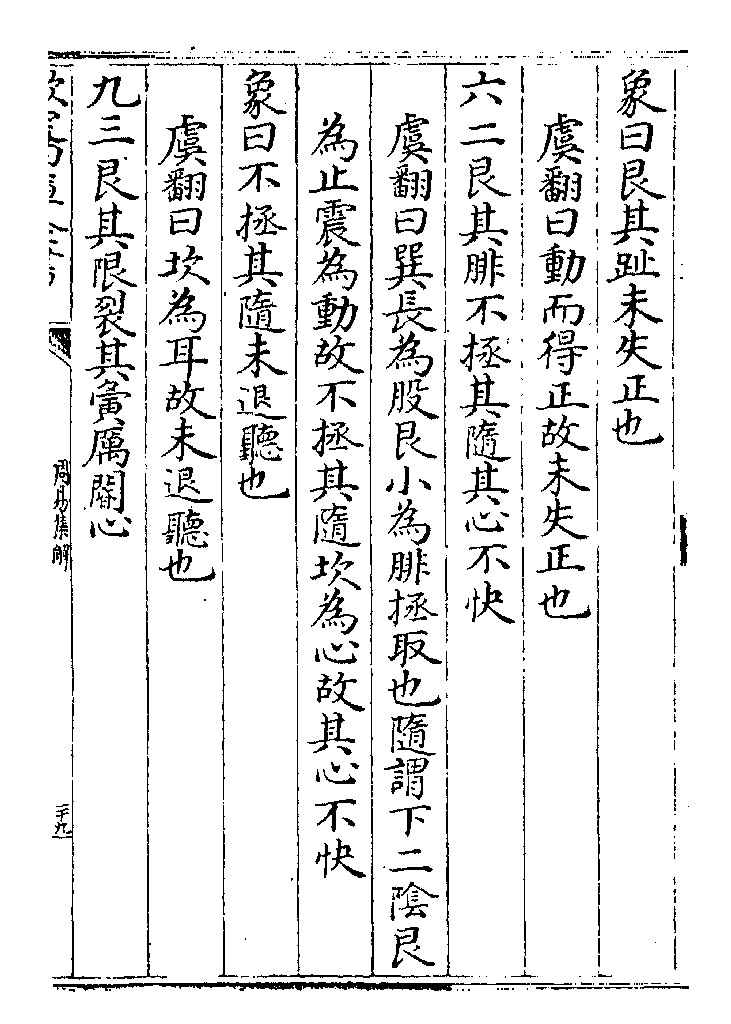 象曰艮其趾未失正也
虞翻曰動而得正故未失正也
六二艮其腓不拯其隨其心不快
虞翻曰巽長為股艮小為腓拯取也隨謂下二陰艮
為止震為動故不拯其隨坎為心故其心不快
象曰不拯其隨未退聽也
虞翻曰坎為耳故未退聽也
九三艮其限裂其夤厲閽心
周易集解
二十九